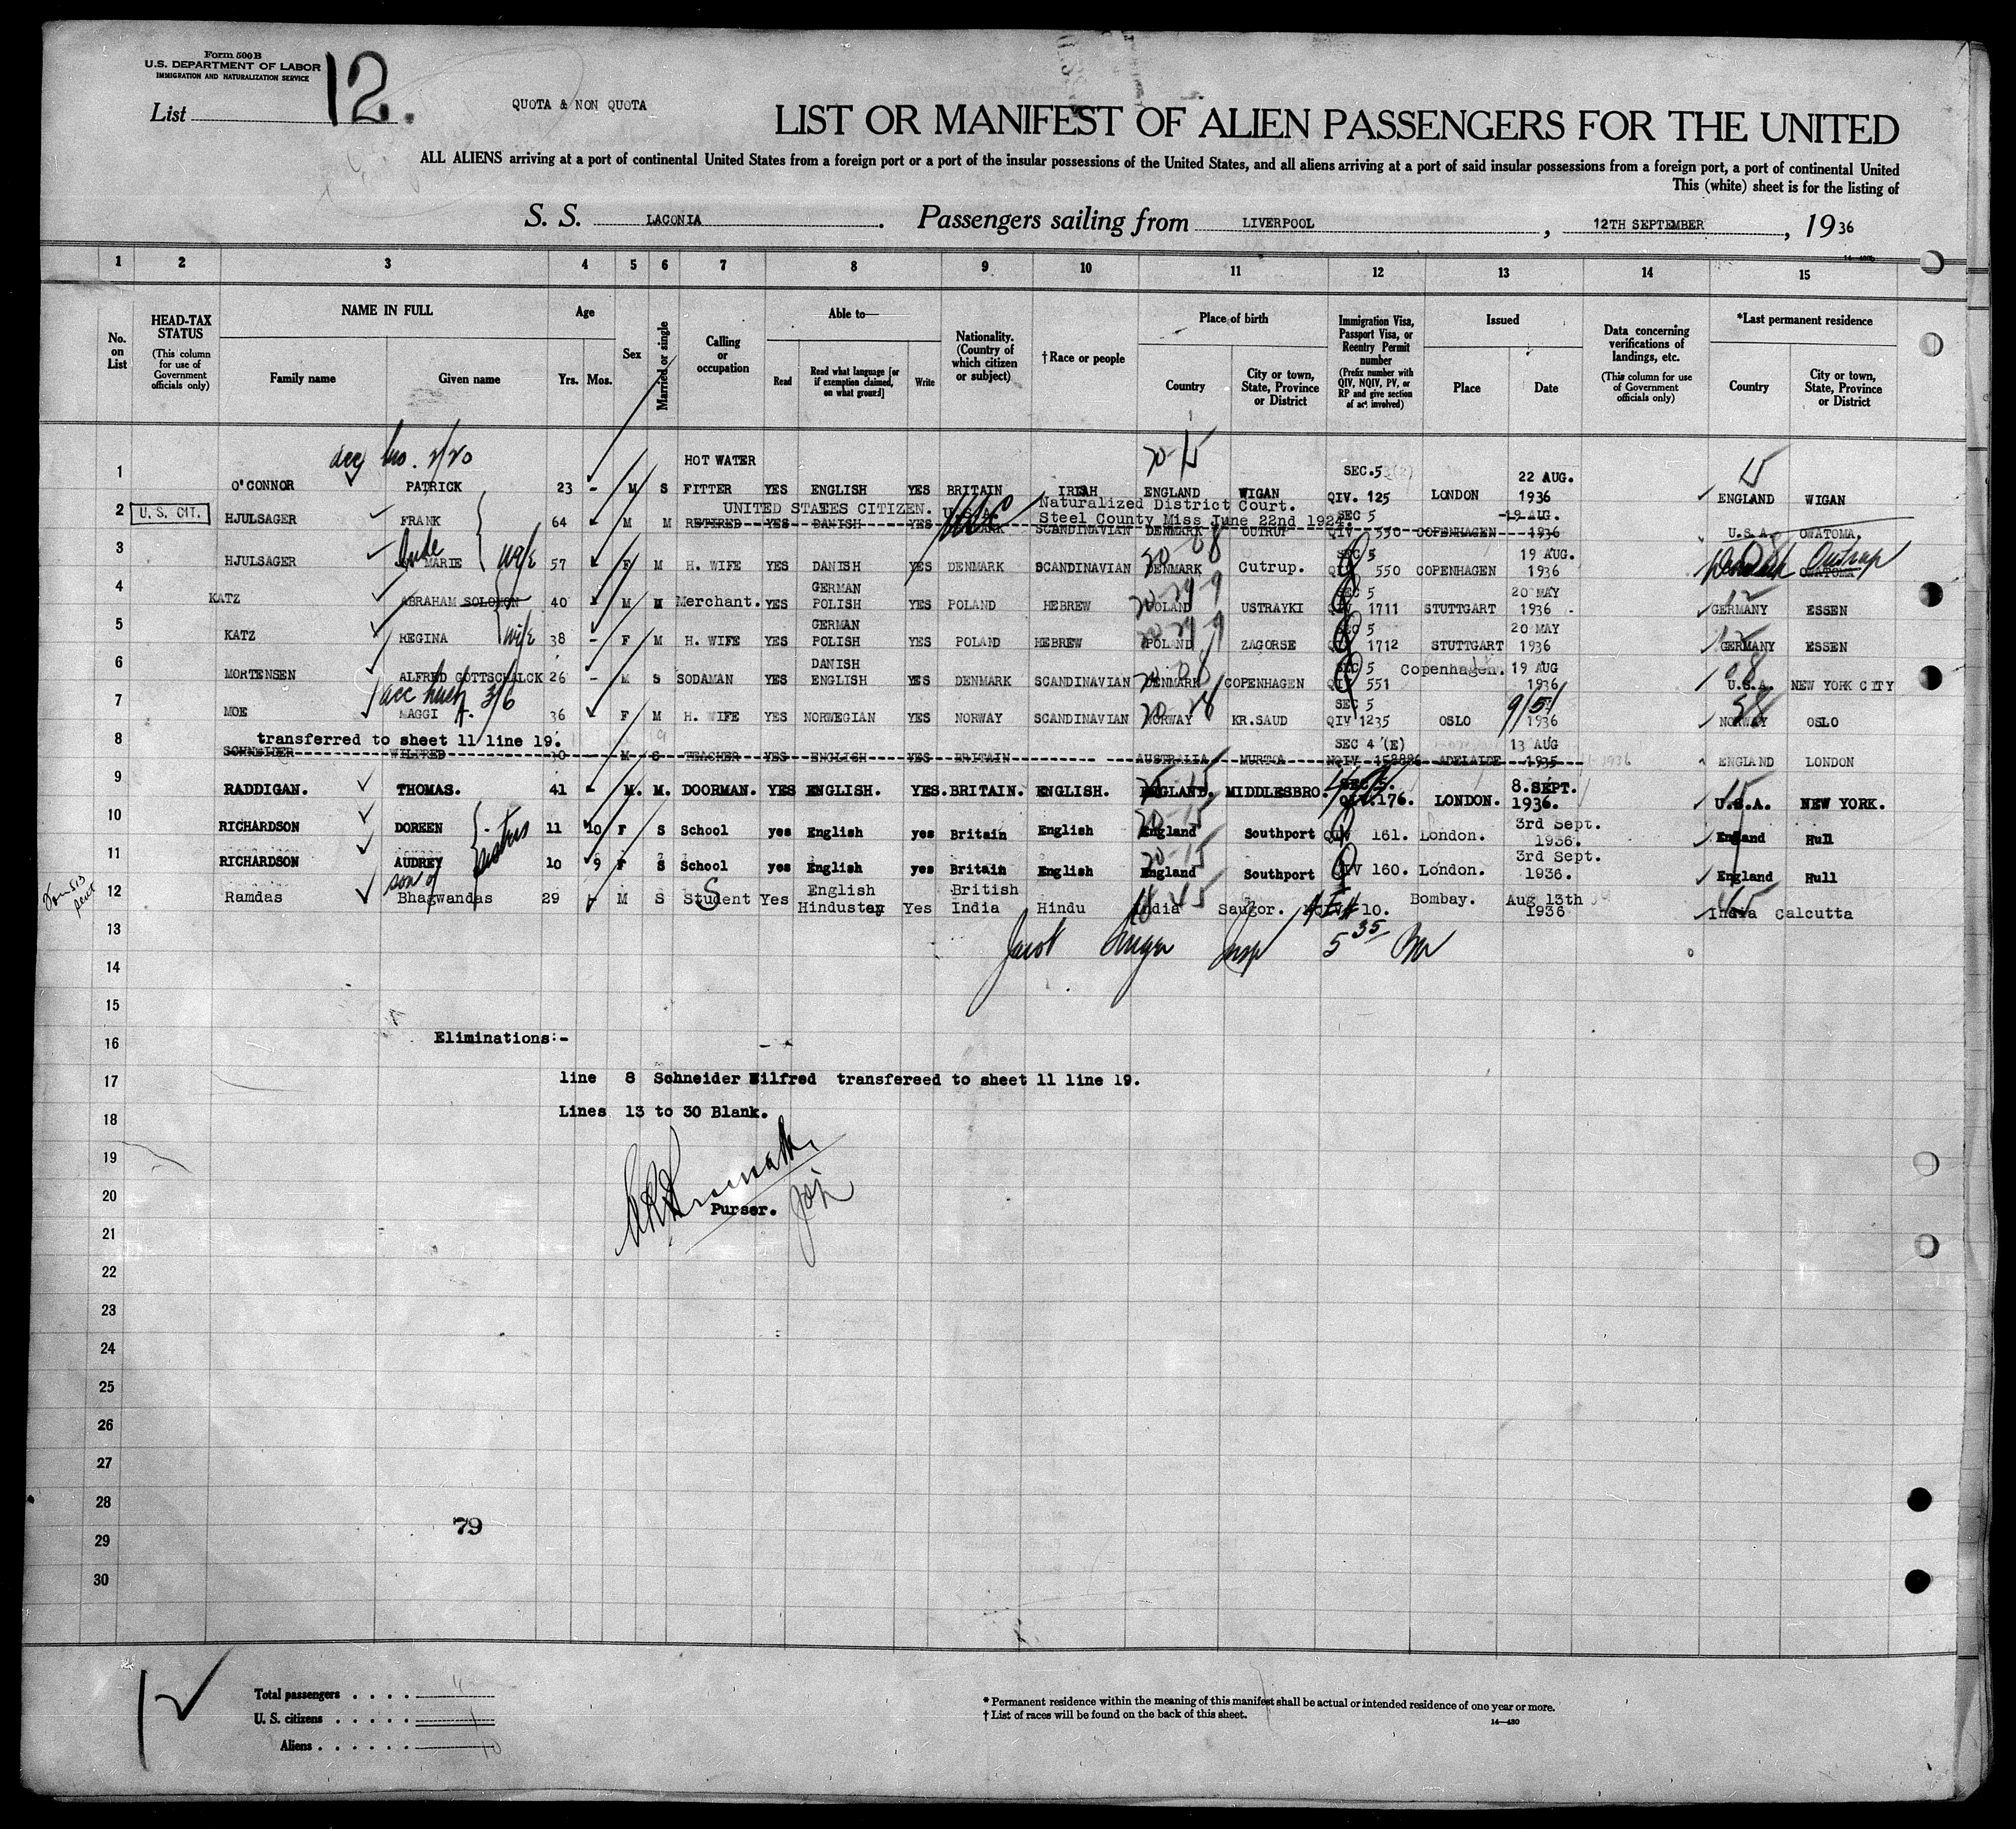 Form 500 B
U.S. DEPARTMENT OF LABOR
IMMIGRATION AND NATURALIZATION SERVICE
List 12.
QUOTA & NON QUOTA
LIST OR MANIFEST OF ALIEN PASSENGERS FOR THE UNITED
ALL ALIENS arriving at a port of continental United States from a foreign port or a port of the insular possessions of the United States, and all aliens arriving at a port of said insular possessions from a foreign port, a port of continental United
This (white) sheet is for the listing of
S. S. LACONIA. Passengers sailing from LIVERPOOL, 12TH SEPTEMBER, 1936
14—430b
1 2 3 4 5 6 7 8 9 10 11 12 13 14 15
No. on List
HEAD-TAX STATUS (This column for use of Government officials only)
NAME IN FULL Family name Given name
Age Yrs. Mos.
Sex
Married or single
Calling or occupation
Able to— Read Read what language [or if exemption claimed, on what ground] Write
Nationality. (Country of which citizen or subject)
†Race or people
Place of birth Country City or town, State, Province or District
Immigration Visa, Passport Visa, or Reentry Permit number (Prefix number with QIV, NQIV, PV, or RP and give section of act involved)
Issued Place Date
Data concerning verifications of landings, etc. (This column for use of Government officials only)
*Last permanent residence Country City or town, State, Province or District
20-15 15
1 O'CONNOR PATRICK 23 - M S HOT WATER FITTER YES ENGLISH YES BRITAIN IRISH ENGLAND WIGAN SEC.5 QIV. 125 LONDON 22 AUG. 1936 ENGLAND WIGAN
UNITED STATES CITIZEN. U.S.A. Naturalized District Court. Steel County Miss June 22nd 1924.
2 U. S. CIT. HJULSAGER FRANK 64 - M M RETIRED YES DANISH YES SCANDINAVIAN DENMARK OUTRUP SEC 5 QIV 550 COPENHAGEN 19 AUG. 1936 U.S.A. OWATOMA.
3 HJULSAGER MARIE wife 57 - F M H. WIFE YES DANISH YES DENMARK SCANDINAVIAN DENMARK Cutrup. SEC 5 QIV 550 COPENHAGEN 19 AUG. 1936 OWATOMA Outrup
4 KATZ ABRAHAM SOLOMON 40 - M M Merchant. YES GERMAN POLISH YES POLAND HEBREW POLAND USTRAYKI SEC 5 QIV 1711 STUTTGART 20 MAY 1936 GERMANY ESSEN
5 KATZ REGINA wife 38 - F M H. WIFE YES GERMAN POLISH YES POLAND HEBREW POLAND ZAGORSE SEC 5 QIV 1712 STUTTGART 20 MAY 1936 GERMANY ESSEN
6 MORTENSEN ALFRED GOTTSCHALCK 26 - M S SODAMAN YES DANISH ENGLISH YES DENMARK SCANDINAVIAN DENMARK COPENHAGEN SEC 5 QIV 551 Copenhagen. 19 AUG 1936 U.S.A. NEW YORK CITY
7 MOE MAGGI A. 36 F M H. WIFE YES NORWEGIAN YES NORWAY SCANDINAVIAN NORWAY KR.SAUD SEC 5 QIV 1235 OSLO 9/5/ 1936 NORWAY OSLO
transferred to sheet 11 line 19.
8 SCHNEIDER WILFRED 30 - M S TEACHER YES ENGLISH YES BRITAIN AUSTRALIA MURTOA SEC 4 (E) NQIV 158886 ADELAIDE 13 AUG 1935 ENGLAND LONDON
9 RADDIGAN. THOMAS. 41 - M. M. DOORMAN. YES ENGLISH. YES. BRITAIN. ENGLISH. ENGLAND. MIDDLESBRO. SEC 5. QIV.176. LONDON. 8.SEPT. 1936. U.S.A. NEW YORK.
10 RICHARDSON DOREEN 11 10 F S School yes English yes Britain English England Southport QIV 161. London. 3rd Sept. 1936. England Hull
sisters
11 RICHARDSON AUDREY 10 9 F S School yes English yes Britain English England Southport QIV 160. London. 3rd Sept. 1936. England Hull
son of
12 Ramdas Bhagwandas 29 - M S Student Yes English Hindustay Yes British India Hindu India Saugor. 10. Bombay. Aug 13th 1936 India Calcutta
13
14
15
16 Eliminations:-
17 line 8 Schneider Wilfred transfereed to sheet 11 line 19.
18 Lines 13 to 30 Blank.
19
20 Purser.
21
22
23
24
25
26
27
28
79
29
30
Total passengers . . . . 11
U. S. citizens . . . . . 1
Aliens . . . . . . 10
* Permanent residence within the meaning of this manifest shall be actual or intended residence of one year or more.
† List of races will be found on the back of this sheet.
14—430